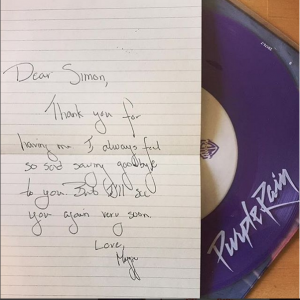 Dear Simon,
Thank you for
having me I always feel
so sad saying goodbye
to you But I'll see
you again very soon.
Love,
Purple Rain